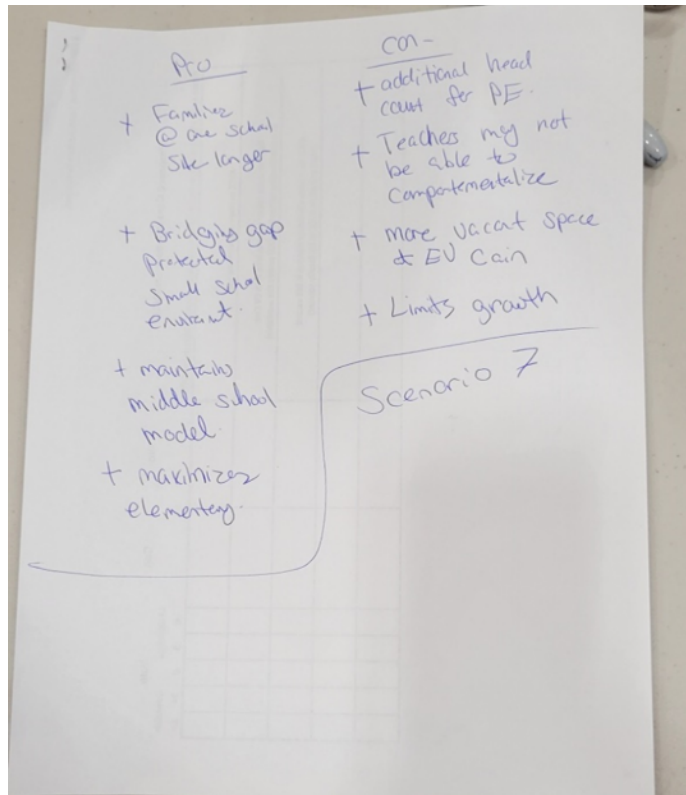 Pro
+ Families
@ one school
Site longer
+ Bridging gap
protected
small school
+ maintains
middle school
model.
+ maximizes
elementary.
Con-
+ additional head
count for PE.
+ Teachers may not
be able to
compartementalize
+ more vacant space
EV Cain
+ Limits growth
Scenario 7